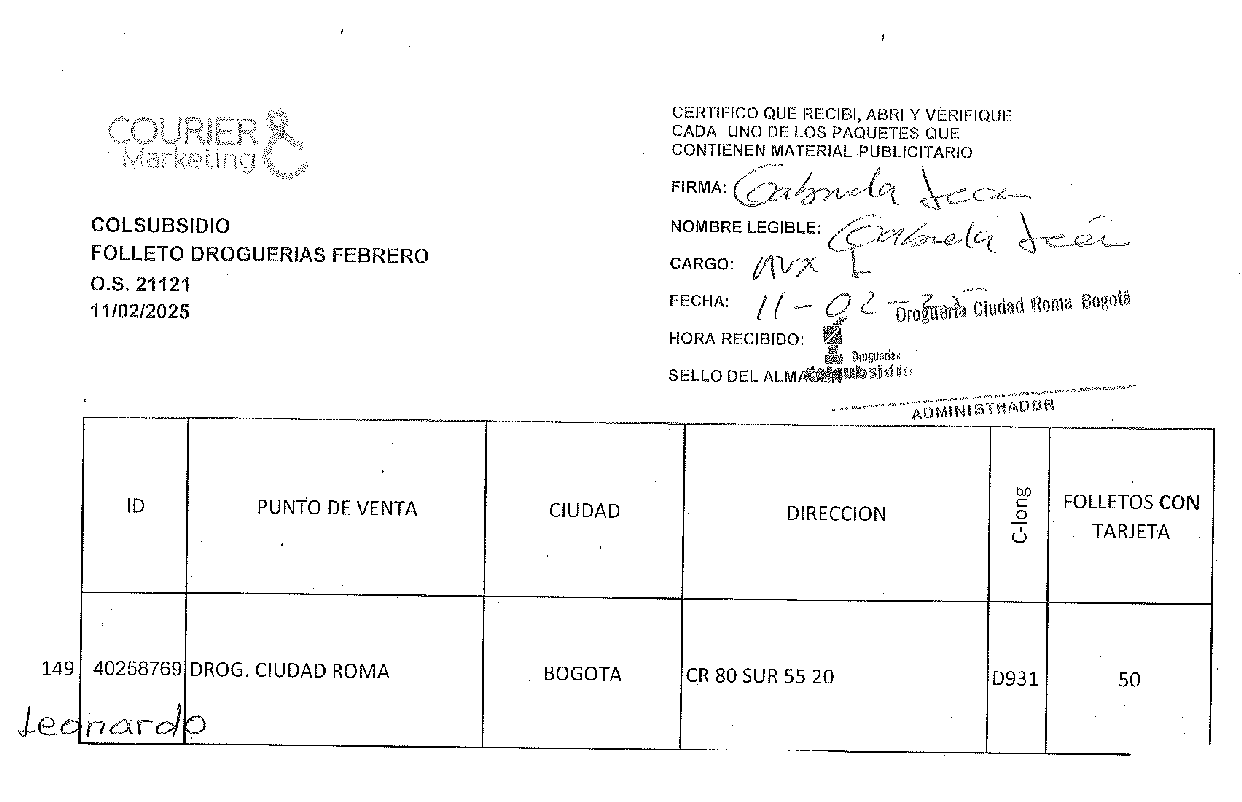 COURIER
Marketing
COLSUBSIDIO
FOLLETO DROGUERIAS FEBRERO
O.S. 21121
11/02/2025
CERTIFICO QUE RECIBI, ABRI Y VERIFIQUE
CADA UNO DE LOS PAQUETES QUE
CONTIENEN MATERIAL PUBLICITARIO
FIRMA: Gabriela
NOMBRE LEGIBLE: Gabriela
CARGO: Aux
FECHA: 11-02-
Droguería Ciudad Roma Bogotá
HORA RECIBIDO:
Droguerías
SELLO DEL ALMA
Colsubsidio
ADMINISTRADOR
ID PUNTO DE VENTA CIUDAD DIRECCION C-long FOLLETOS CON TARJETA
149 40268769 DROG. CIUDAD ROMA BOGOTA CR 80 SUR 55 20 D931 50
Leonardo